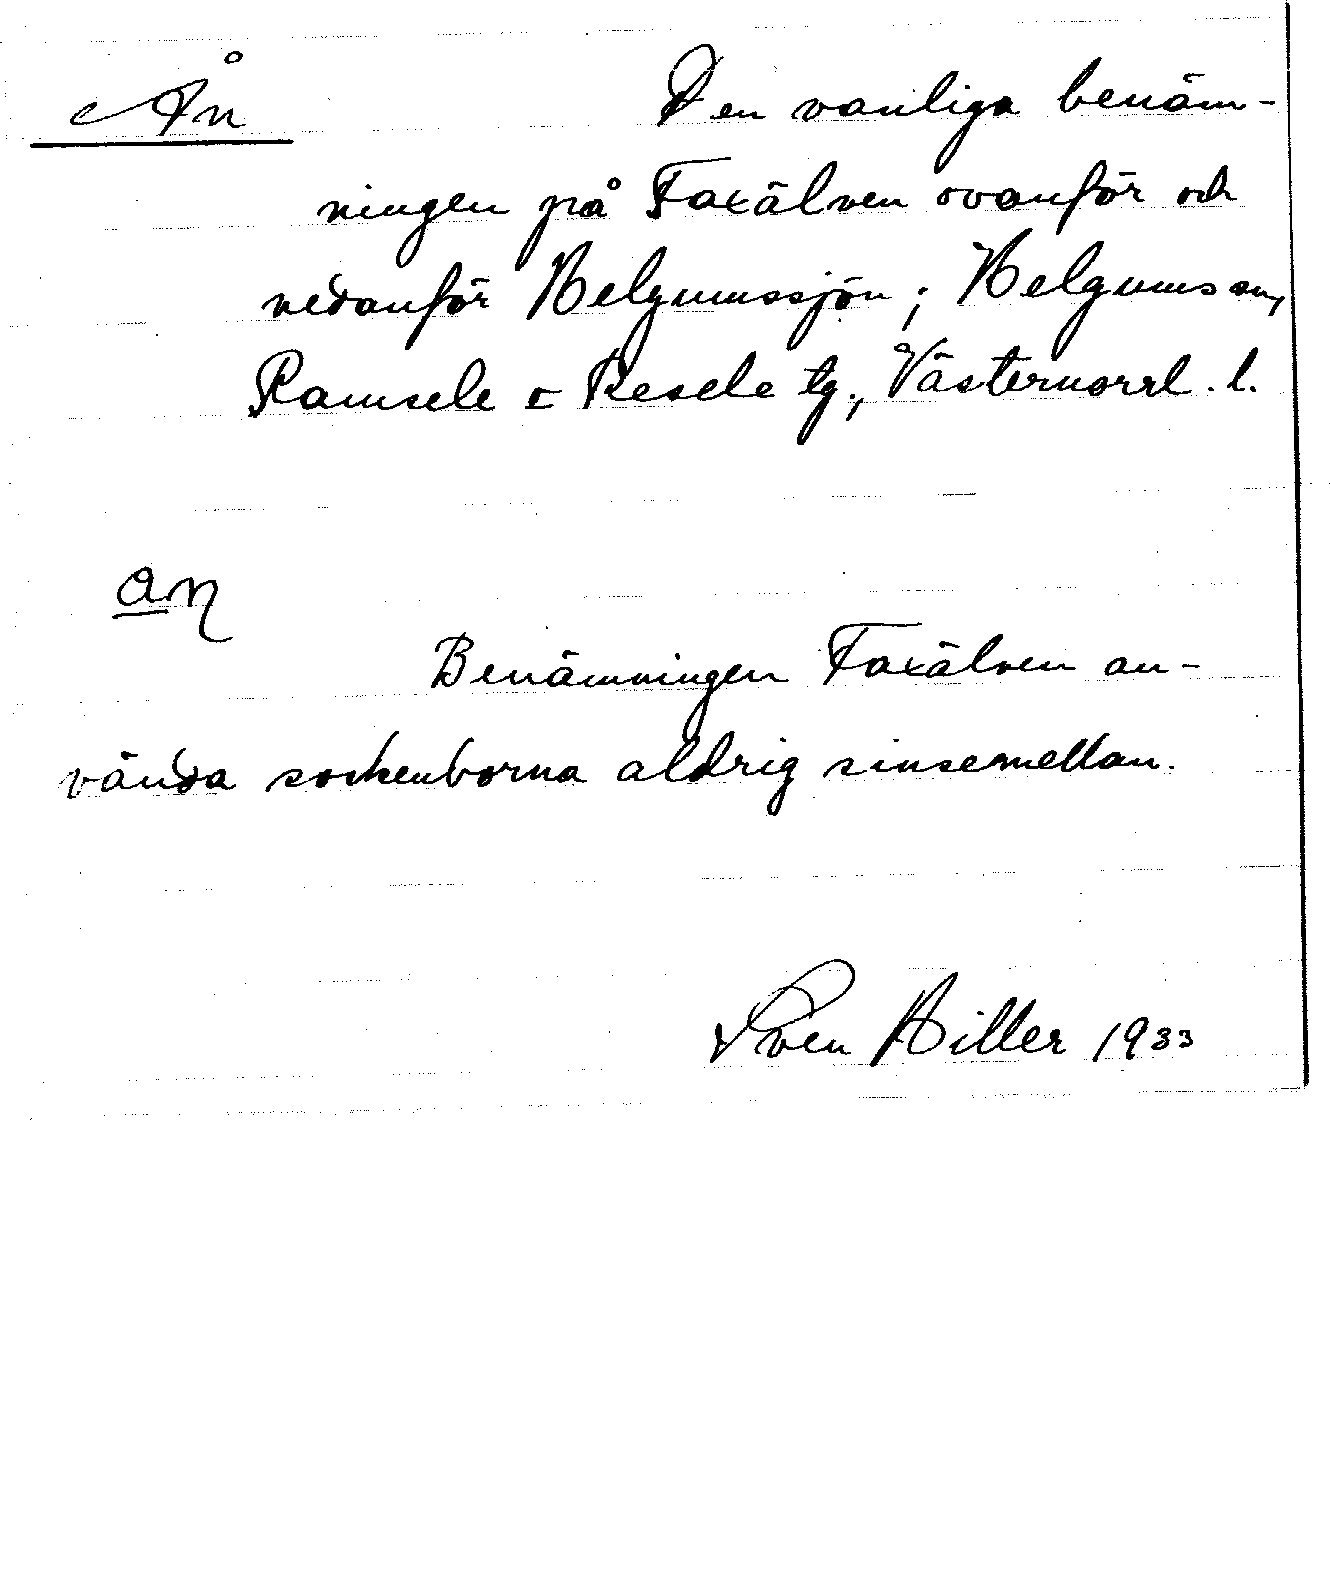 Ån Den vanliga benäm-
ningen på Faxälven ovanför och
nedanför Helgumssjön; Helgums sn,
Ramsele o Resele tg., Västernorrl. l.
Benämningen Faxälven an-
vända sockenborna aldrig sinsemellan.
Sven Hiller 1933